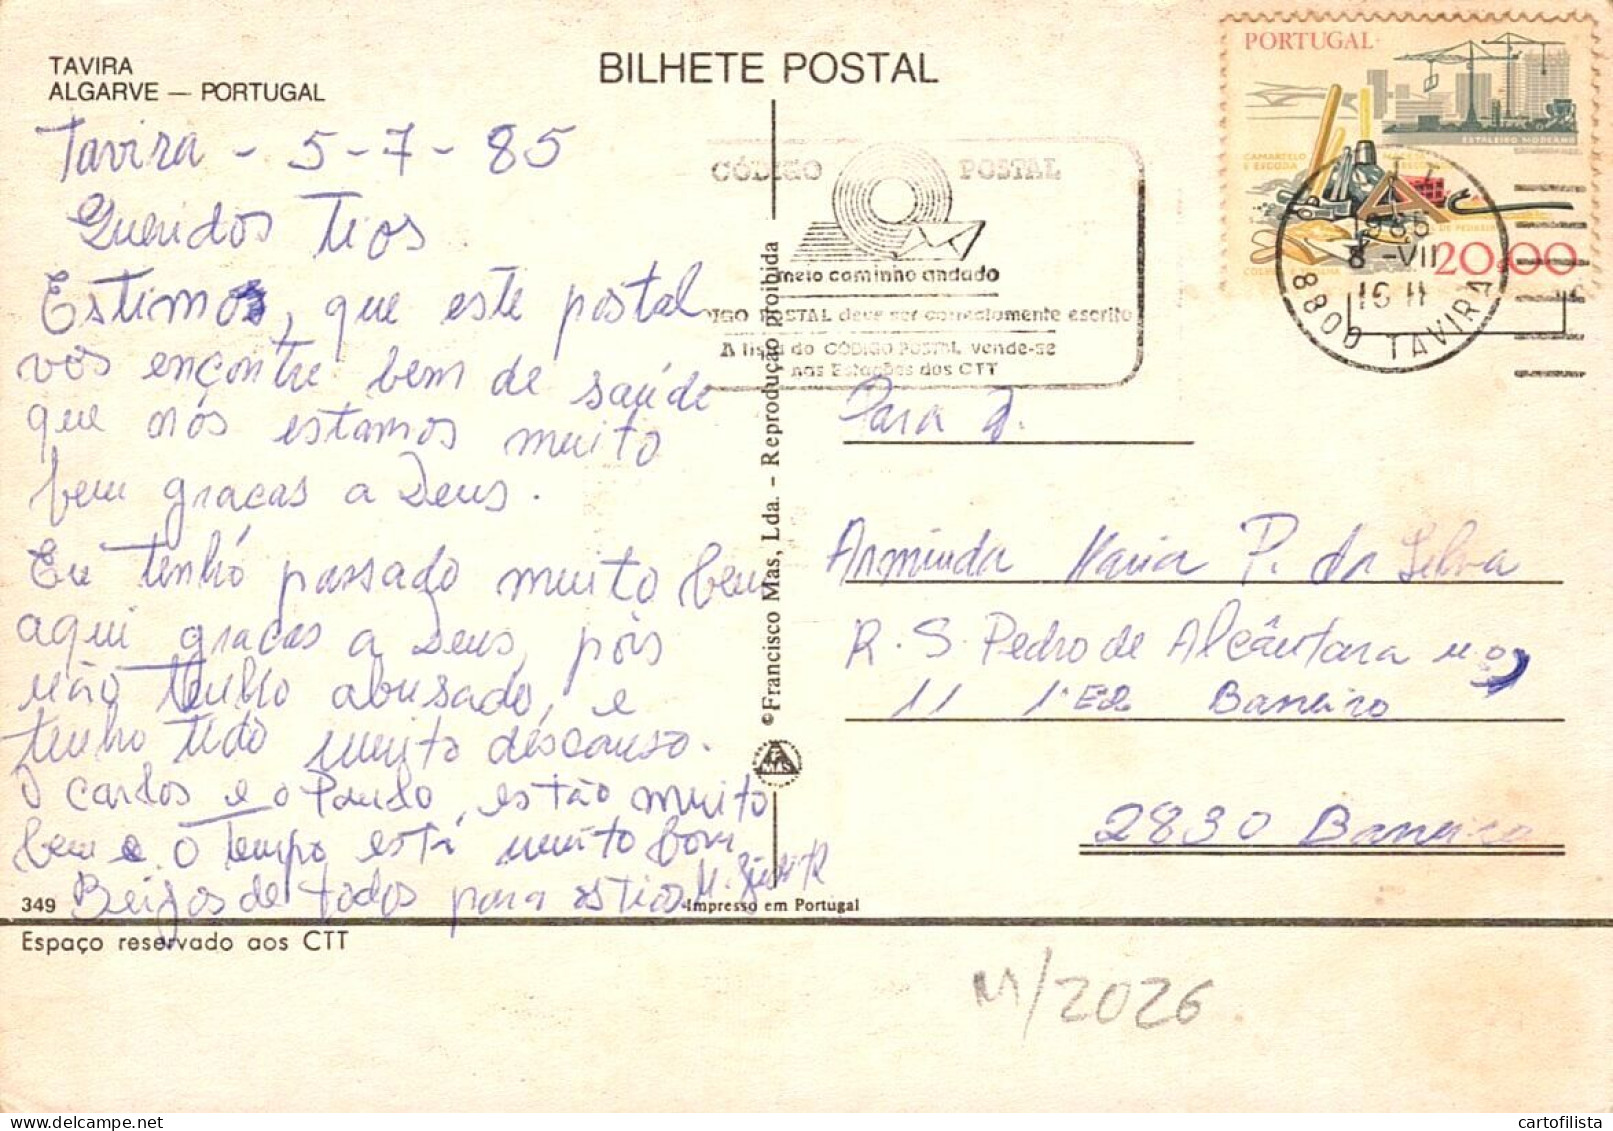 TAVIRA
ALGARVE — PORTUGAL
BILHETE POSTAL
Tavira - 5-7-85
Queridos Tios
Estimo, que este postal
vos encontre bem de saúde
que nós estamos muito
bem gracas a Deus.
Eu tenho passado muito bem
aqui gracas a Deus, pois
não tenho abusado, e
tenho tido muito descanso.
O Carlos e o Paulo, estão muito
bem e o Tempo está muito bom
Beijos de todos para os tios M.
349
Espaço reservado aos CTT
©Francisco Mas, Lda. - Reprodução proibida
MAS
Impresso em Portugal
CÓDIGO POSTAL
meio caminho andado
DIGO POSTAL deve ser correctamente escrito
A lista do CÓDIGO POSTAL vende-se
nas Estações dos CTT
PORTUGAL
ESTALEIRO MODERNO
CAMARTELO
E ESCODA
20.00
1985
8 -VII
8800 TAVIRA
Para
Arminda Maria P. da Silva
R. S. Pedro de Alcântara nº
11 1º Barreiro
2830 Barreiro
M/2026
cartofilista.com